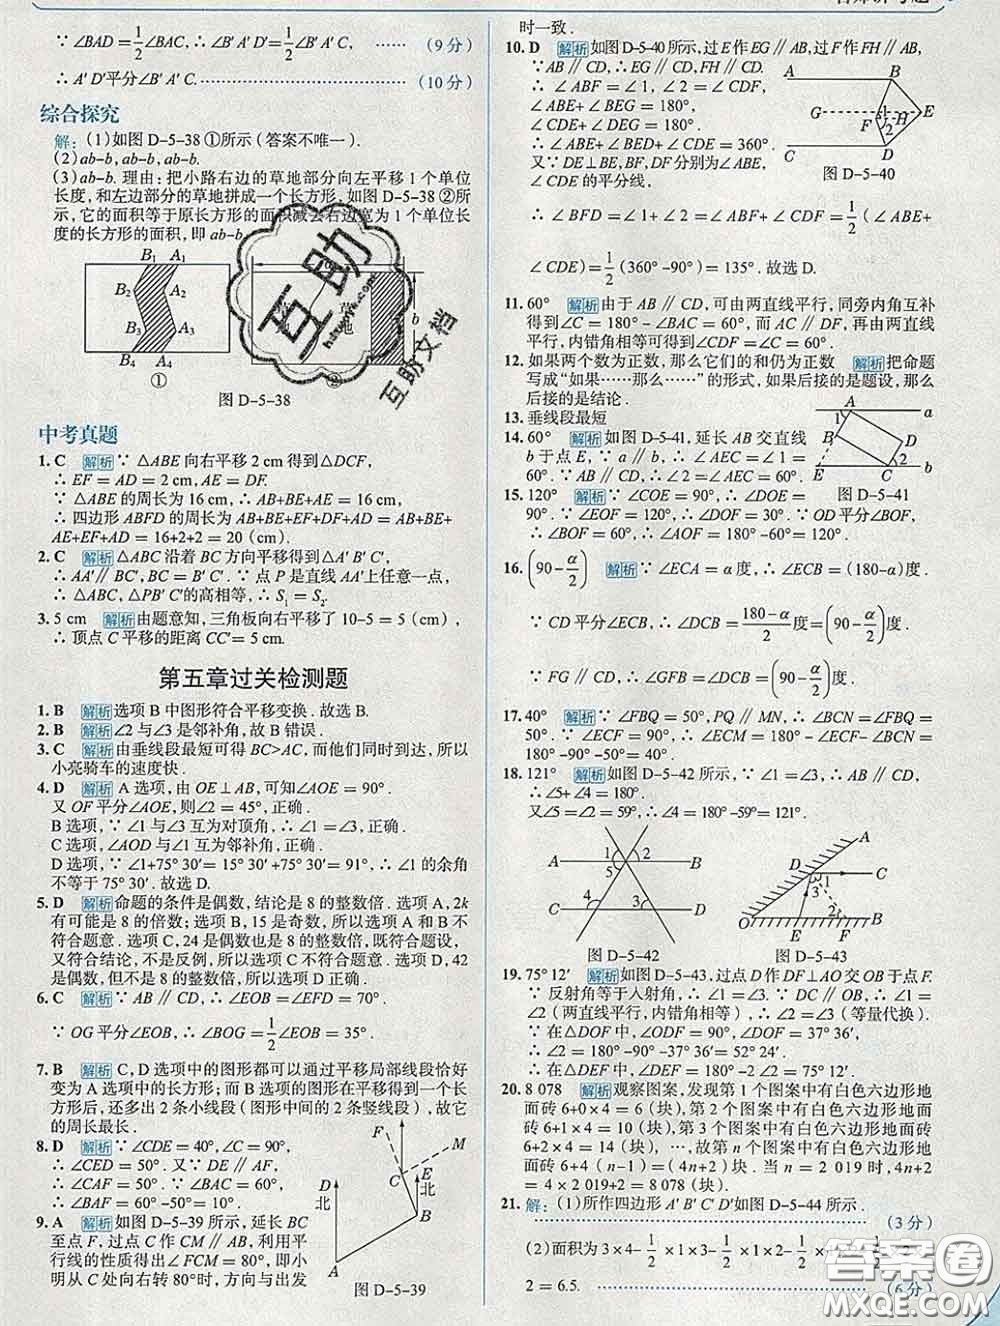 ∵ ∠BAD=1/2∠BAC,∴∠B′A′D′=1/2∠B′A′C′, …… (9分)
∴ A′D′平分∠B′A′C. …… (10分)
综合探究
解:(1)如图D-5-38①所示(答案不唯一).
(2)ab-b,ab-b,ab-b.
(3)ab-b.理由:把小路右边的草地部分向左平移1个单位
长度,和左边部分的草地拼成一个长方形.如图D-5-38②所
示,它的面积等于原长方形的面积减去右边宽为1个单位长
度的长方形的面积,即ab-b.
B₁ A₁
B₂ A₂
B₃ A₃
B₄ A₄
① ②
草 地
b
图D-5-38
中考真题
1.C 解析 ∵ △ABE向右平移2 cm得到△DCF,
∴ EF=AD=2 cm,AE=DF.
∵ △ABE的周长为16 cm,∴ AB+BE+AE=16 cm,
∴ 四边形ABFD的周长为AB+BE+EF+DF+AD=AB+BE+
AE+EF+AD=16+2+2=20(cm).
2.C 解析 △ABC沿着BC方向平移得到△A′B′C′,
∴ AA′∥BC′,BC=B′C′.∵ 点P是直线AA′上任意一点,
∴ △ABC,△PB′C′的高相等,∴ S₁=S₂.
3.5 cm 解析 由题意知,三角板向右平移了10-5=5(cm),
∴ 顶点C平移的距离CC′=5 cm.
第五章过关检测题
1.B 解析 选项B中图形符合平移变换.故选B.
2.B 解析 ∠2与∠3是邻补角,故B错误.
3.C 解析 由垂线段最短可得BC>AC,而他们同时到达,所以
小亮骑车的速度快.
4.D 解析 A选项,由OE⊥AB,可知∠AOE=90°.
又OF平分∠AOE,则∠2=45°,正确.
B选项,∵ ∠1与∠3互为对顶角,∴ ∠1=∠3,正确.
C选项,∠AOD与∠1互为邻补角,正确.
D选项,∵ ∠1+75°30′=15°30′+75°30′=91°,∴ ∠1的余角
不等于75°30′.故选D.
5.D 解析 命题的条件是偶数,结论是8的整数倍.选项A,2k
有可能是8的倍数;选项B,15是奇数,所以选项A和B不
符合题意.选项C,24是偶数也是8的整数倍,既符合题设,
又符合结论,不是反例,所以选项C不符合题意.选项D,42
是偶数,但不是8的整数倍,所以选项D符合题意.
6.C 解析 ∵ AB∥CD,∴ ∠EOB=∠EFD=70°.
∵ OG平分∠EOB,∴ ∠BOG=1/2∠EOB=35°.
7.B 解析 C,D选项中的图形都可以通过平移局部线段恰好
变为A选项中的长方形;而B选项的图形在平移得到一个长
方形后,还多出2条小线段(图形中间的2条竖线段),故它
的周长最长.
8.D 解析 ∵ ∠CDE=40°,∠C=90°,
∴ ∠CED=50°.又∵ DE∥AF,
∴ ∠CAF=50°.∵ ∠BAC=60°,
∴ ∠BAF=60°-50°=10°.
9.A 解析 如图D-5-39所示,延长BC
至点F,由题可得CM∥AB,利用平
行线的性质得出∠FCM=80°;而小
明从C处向右转80°时,方向与出发
F M
C E
D
北 北
B
A
图D-5-39
时一致.
10.D 解析 如图D-5-40所示,过E作EG∥AB,过F作FH∥AB,
∵AB∥CD,∴EG∥CD,FH∥CD.
∴ ∠ABF=∠1,∠2=∠CDF,
∠ABE+∠BEG=180°,
∠CDE+∠DEG=180°.
∴ ∠ABE+∠BED+∠CDE=360°.
又∵DE⊥BE,BF,DF分别为∠ABE,
∠CDE的平分线,
A B
G E
F 1 2 H
C D
图D-5-40
∴ ∠BFD=∠1+∠2=∠ABF+∠CDF=1/2(∠ABE+
∠CDE)=1/2(360°-90°)=135°.故选D.
11.60° 解析 由于AB∥CD,可由两直线平行,同旁内角互补
得到∠C=180°-∠BAC=60°,而AC∥DF,再由两直线平行,
内错角相等可得到∠CDF=∠C=60°.
12.如果两个数为正数,那么它们的和仍为正数 解析 把命题
写成“如果……那么……”的形式,如果后接的是题设,那么
后接的是结论.
13.垂线段最短
14.60° 解析 如图D-5-41,延长AB交直线
b于点E,∵ a∥b,∴ ∠AEC=∠1=
60°,∵ AE∥CD,∴ ∠2=∠AEC=60°.
A a
1
B D
2
E C b
图D-5-41
15.120° 解析 ∵ ∠COE=90°,∴ ∠DOE=
90°.∵ ∠EOF=120°,∴ ∠DOF=30°.∵ OD平分
∠BOF,∴ ∠BOF=60°,∴ ∠AOF=180°-60°=120°.
16.(90-α/2) 解析 ∵ ∠ECA=α度,∴ ∠ECB=(180-α)度.
∵ CD平分∠ECB,∴∠DCB=1/2∠ECB=(180-α)/2度=(90-α/2)度.
∵ FG∥CD,∴ ∠GFB=∠DCB=(90-α/2)度.
17.40° 解析 ∵ ∠FBQ=50°,PQ∥MN,∴ ∠BCN=∠FBQ=
50°.∵ ∠ECF=90°,∴ ∠ECM=180°-∠ECF-∠BCN=
180°-90°-50°=40°.
18.121° 解析 如图D-5-42所示,∵ ∠1=∠3,∴AB∥CD.
∴ ∠5+∠4=180°.
又∠5=∠2=59°,∴∠4=180°-59°=121°.
A 1 2 B
5
4 3
C D
图D-5-42
A
D 1
C
2
3
O E F B
图D-5-43
19.75°12′ 解析 如图D-5-43,过点D作DF⊥AO交OB于点F.
∵ 反射角等于入射角,∴ ∠1=∠3.∵ DC∥OB,∴ ∠1=
∠2(两直线平行,内错角相等).∴ ∠2=∠3(等量代换).
∵ 在△DOF中,∠ODF=90°,∠DOF=37°36′,
∴ ∠2=180°-90°-37°36′=52°24′.
∴ 在△DEF中,∠DEF=180°-2∠2=75°12′.
20.8 078 解析 观察图案,发现第1个图案中有白色六边形地
面砖6+0×4=6(块),第2个图案中有白色六边形地面砖
6+1×4=10(块),第3个图案中有白色六边形地面砖
6+2×4=14(块),…,故第n个图案中有白色六边形地面
砖6+4(n-1)=(4n+2)块.当n=2 019时,4n+2=
4×2 019+2=8 078(块).
21.解:(1)所作四边形A′B′C′D′如图D-5-44所示.
…… (3分)
(2)面积为3×4-1/2×1×3-1/2×1×2-1/2
2=6.5. …… (6分)
互助
互助文档
答案卷
MXQE.COM